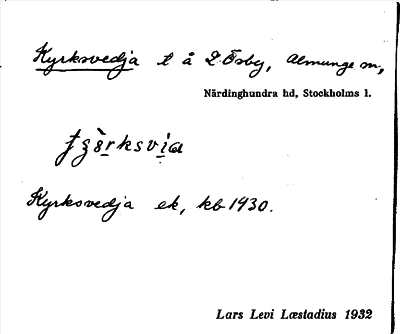 Kyrksvedja t å L Ösby, Almunge sn,
Närdinghundra hd, Stockholms l.
Kyrksvedja ek, kb 1930.
Lars Levi Læstadius 1932